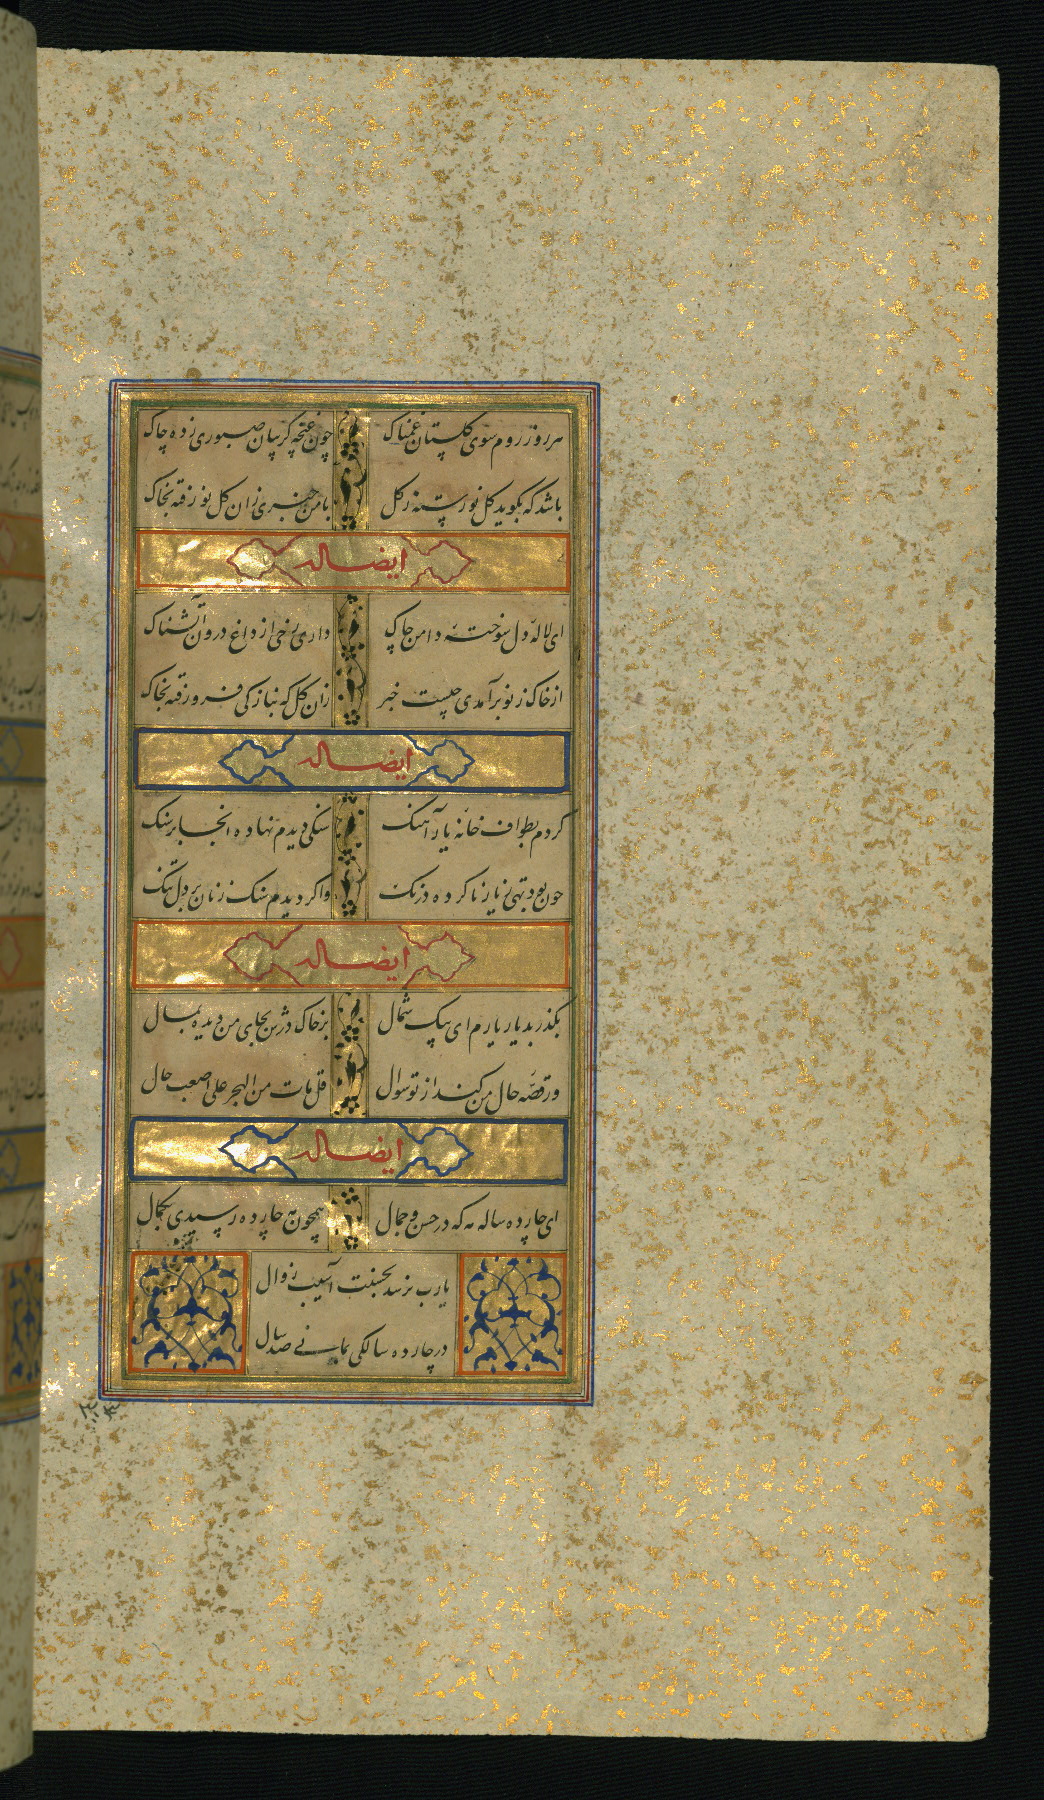 هر روز روم سوی گلستان غمناک چون غنچه گریبان صبوری زده چاک
باشد که بگوید گل نورسته ز گل با من خبری زان گل نو رفته بخاک
ایضا له
ای لاله دل سوخته دامن چاک داری رخی از داغ درون آتشناک
از خاک ز نو برآمدی چیست خبر زان گل که بنازکی فرو رفته بخاک
ایضا له
کردم بطواف خانه یار آهنگ سنگی دیدم نهاده انجا بر سنگ
چون بود تهی ز یار ناکرده درنگ واکردیدم سنگ زنان بر دل تنگ
ایضا له
بگذر بدیار یارم ای پیک شمال بر خاک درش بجای من دیده بمال
ور قصه حال من کند از تو سوال قل مات من الهجر علی اصعب حال
ایضا له
ای چارده ساله مه که در حسن و جمال همچون مه چارده رسیدی بکمال
یارب نرسد بحسنت آسیب زوال
در چارده سالگی بمانی صد سال